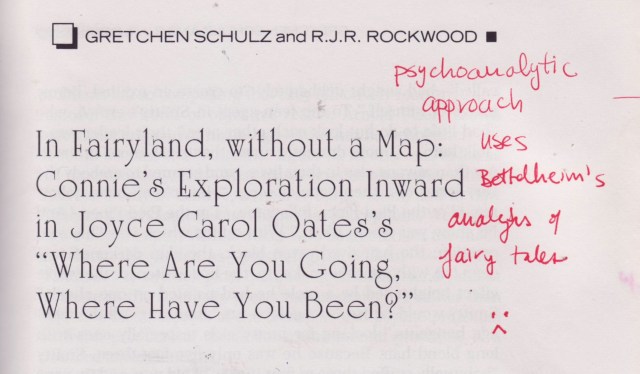 GRETCHEN SCHULZ and R.J.R. ROCKWOOD
psychoanalytic
approach
uses
Bettelheim's
analysis of
fairy tales
In Fairyland, without a Map:
Connie's Exploration Inward
in Joyce Carol Oates's
“Where Are You Going,
Where Have You Been?”